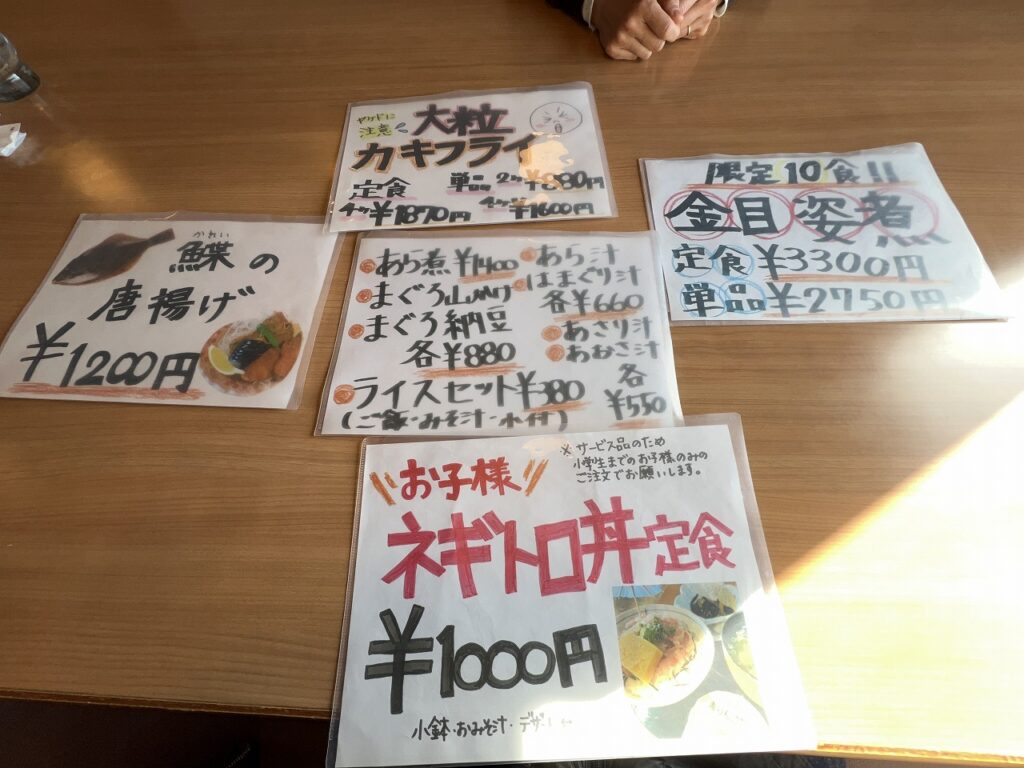 ヤケドに
注意
大粒
カキフライ
定食
単品 2ケ ¥880円
¥1870円
4ケ ¥1600円
限定10食!!
金目姿煮
定食 ¥3300円
単品 ¥2750円
かれい
鰈の
唐揚げ
¥1200円
あら煮 ¥1400
まぐろ山かけ
まぐろ納豆
各¥880
ライスセット¥380
(ご飯・みそ汁・小付)
あら汁
はまぐり汁
各¥660
あさり汁
あおさ汁
各
¥550
お子様
※サービス品のため
小学生までのお子様のみの
ご注文でお願いします。
ネギトロ丼定食
¥1000円
小鉢・おみそ汁・デザート